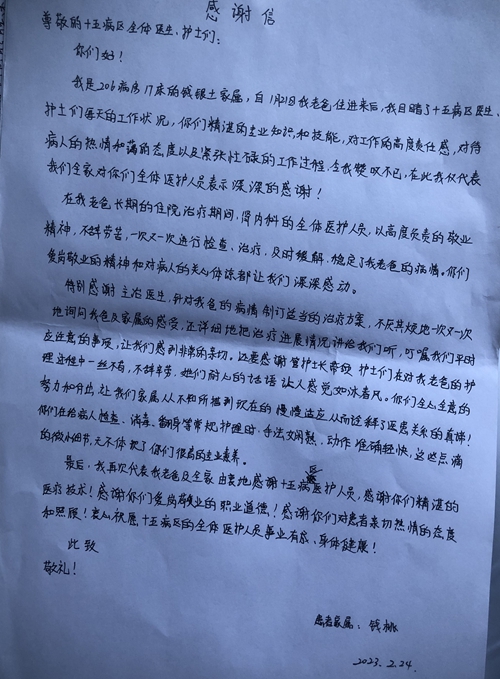 感谢信
尊敬的十五病区全体医生、护士们：
你们好！
我是206病房17床的钱银土家属，自1月21日我老爸住进来后，我目睹了十五病区医生、
护士们每天的工作状况，你们精湛的专业知识和技能，对工作的高度责任感，对待
病人的热情和蔼的态度以及紧张忙碌的工作过程，令我赞叹不已，在此我仅代表
我们全家对你们全体医护人员表示深深的感谢！
在我老爸长期的住院治疗期间，肾内科的全体医护人员，以高度负责的敬业
精神，不辞劳苦，一次又一次进行检查、治疗，及时缓解，稳定了我老爸的病情。你们
爱岗敬业的精神和对病人的关心体谅都让我们深深感动。
特别感谢主治医生，针对我爸的病情制订适当的治疗方案，不厌其烦地一次又一次
地询问我爸及家属的感受，还详细地把治疗进展情况讲给我们听，叮嘱我们平时
应注意的事项，让我们感到非常的亲切。还要感谢管护士长带领护士们在对我老爸的护
理过程中一丝不苟，不辞辛劳，她们耐心的话语让人感觉如沐春风。你们全心全意的
努力和付出，让我们家属从不知所措到现在的慢慢适应从而诠释了医患关系的真谛！
你们在给病人检查、消毒、翻身等常规护理时，手法娴熟，动作准确轻快，这些点滴
的微小细节，无不体现了你们很高的专业素养。
最后，我再次代表我老爸及全家由衷地感谢十五病区医护人员，感谢你们精湛的
医疗技术！感谢你们爱岗敬业的职业道德！感谢你们对患者亲切热情的态度
和照顾！衷心祝愿十五病区的全体医护人员事业有成、身体健康！
此致
敬礼！
患者家属：钱桃
2023.2.24.